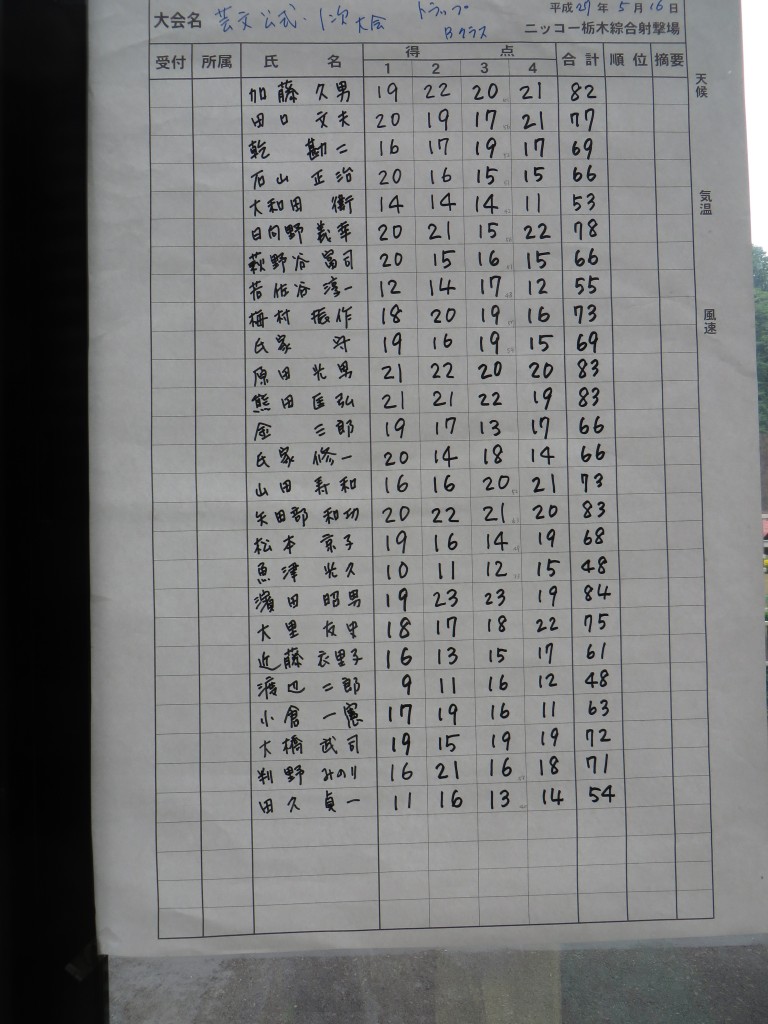 大会名 芸文公式・1次大会 トラップ Bクラス 平成27年5月16日
ニッコー栃木綜合射撃場
受付 所属 氏名 得点 合計 順位 摘要
1 2 3 4
天候
気温
風速
加藤 久男 19 22 20 21 82
田口 文夫 20 19 17 21 77
乾 勘二 16 17 19 17 69
石山 正治 20 16 15 15 66
大和田 衛 14 14 14 11 53
日向野 義幸 20 21 15 22 78
萩野谷 富司 20 15 16 15 66
若佐谷 淳一 12 14 17 12 55
梅村 振作 18 20 19 16 73
氏家 守 19 16 19 15 69
原田 光男 21 22 20 20 83
熊田 匡弘 21 21 22 19 83
金 三郎 19 17 13 17 66
氏家 修一 20 14 18 14 66
山田 寿和 16 16 20 21 73
矢田部 和功 20 22 21 20 83
松本 京子 19 16 14 19 68
魚津 光久 10 11 12 15 48
濱田 昭男 19 23 23 19 84
大里 友史 18 17 18 22 75
近藤 衣里子 16 13 15 17 61
渡辺 二郎 9 11 16 12 48
小倉 一憲 17 19 16 11 63
大橋 武司 19 15 19 19 72
判野 みのり 16 21 16 18 71
田久 貞一 11 16 13 14 54